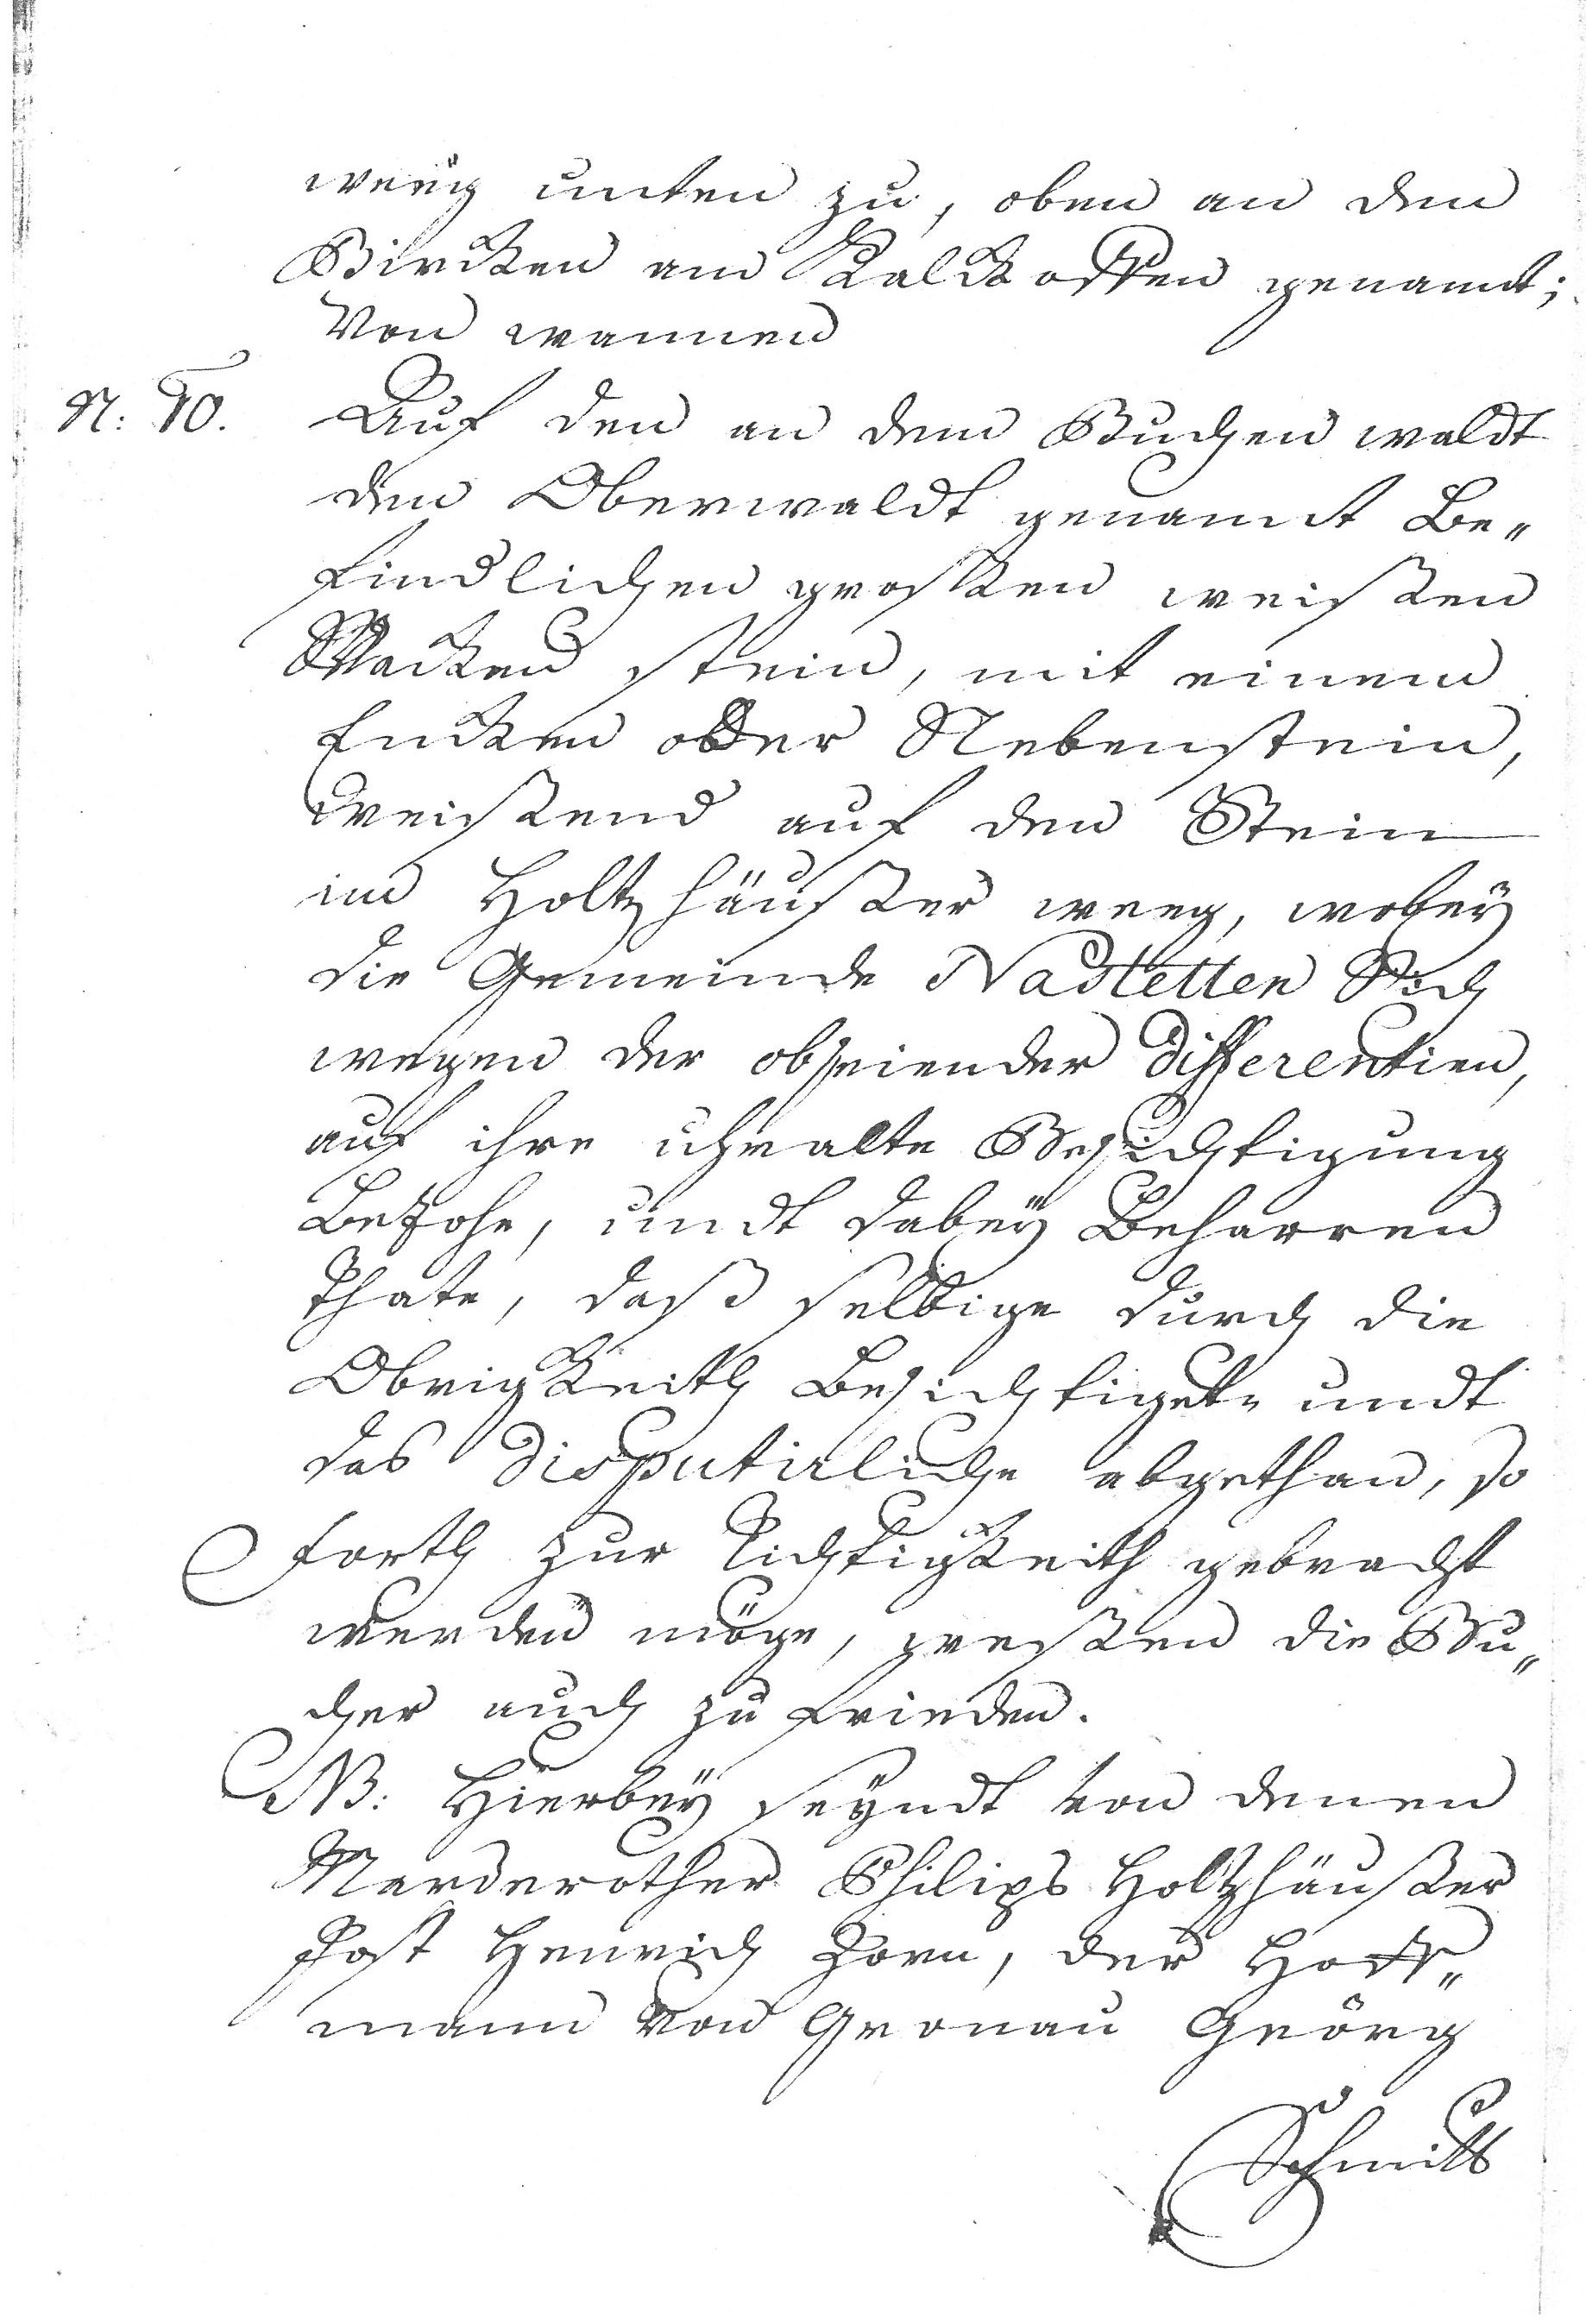 weeg unten zu, oben an den
Bircken am Kalckoffen genannt;
Von wannen
N: 10. Auf den an dem Buchen waldt
den Oberwaldt genannt Be„
findlichen grossen weissen
Wacken stein, mit einem
Ecken oder Nebenstein,
Weissend auf den Stein
im Holtzhäusser weeg, wobey
die Gemeinde Nastetten Sich
wegen der obseiender differentien,
auf ihre uhralte Besichtigung
Bezohe, undt dabey Beharren
thate, dass selbige durch die
Obrigkeith Besichtiget undt
das disputirliche abgethan, so
forth zur Richtigkeith gebracht
werden möge, die Bu„
cher auch zu frieden.
NB: Hierbey seyndt von denen
Marderother Philips Holtzhäusser
Jost Henrich Zorn, der Hoff„
mann von Gronau Geörg
Schmitt